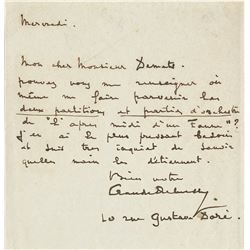 Mercredi.
Mon cher Monsieur Demets
pouvez vous me renseigner où
même me faire parvenir les
deux partitions et parties d'orchestre
de "L'après midi d'un Faune"?
J'en ai le plus pressant besoin
et suis très inquiet de savoir
quelles mains les détiennent.
Bien votre
Claude Debussy
10 rue Gustave Doré.